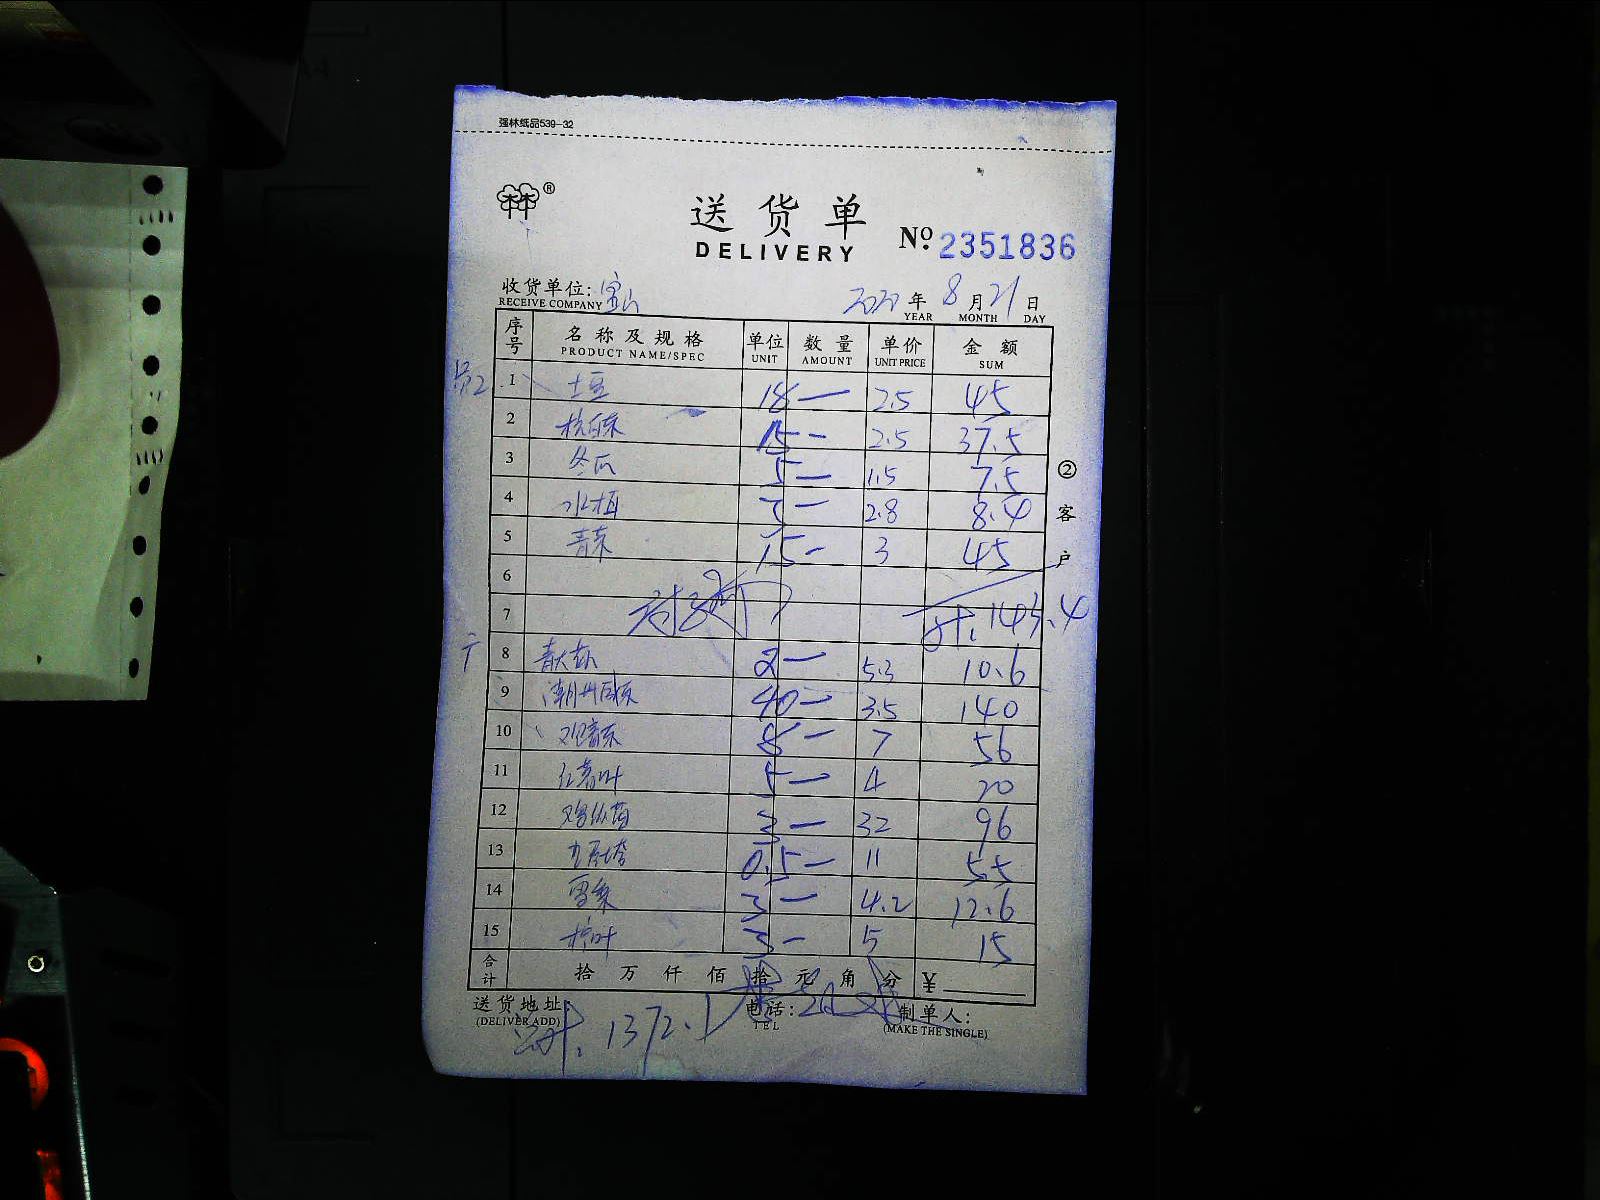 强林纸品539-32
林®
送货单
DELIVERY
Nº. 2351836
收货单位: 宝山 2021年 8月 21日
RECEIVE COMPANY YEAR MONTH DAY
序号 名称及规格 单位 数量 单价 金额
PRODUCT NAME/SPEC UNIT AMOUNT UNIT PRICE SUM
1 土豆 18 — 2.5 45
2 杭白菜 15 — 2.5 37.5
3 冬瓜 5 — 1.5 7.5
4 3 — 2.8 8.4
5 青菜 15 — 3 45
6
7 计. 143.4
8 2 — 5.3 10.6
9 潮州 40 — 3.5 140
10 8 — 7 56
11 红薯叶 5 — 4 20
12 鸡纵菌 3 — 32 96
13 九层塔 0.5 — 11 5.5
14 雪梨 3 — 4.2 12.6
15 3 — 5 15
②客户
合计 拾 万 仟 佰 拾 元 角 分 ¥
送货地址: 电话: 制单人:
(DELIVER ADD) TEL (MAKE THE SINGLE)
总计. 1372.1